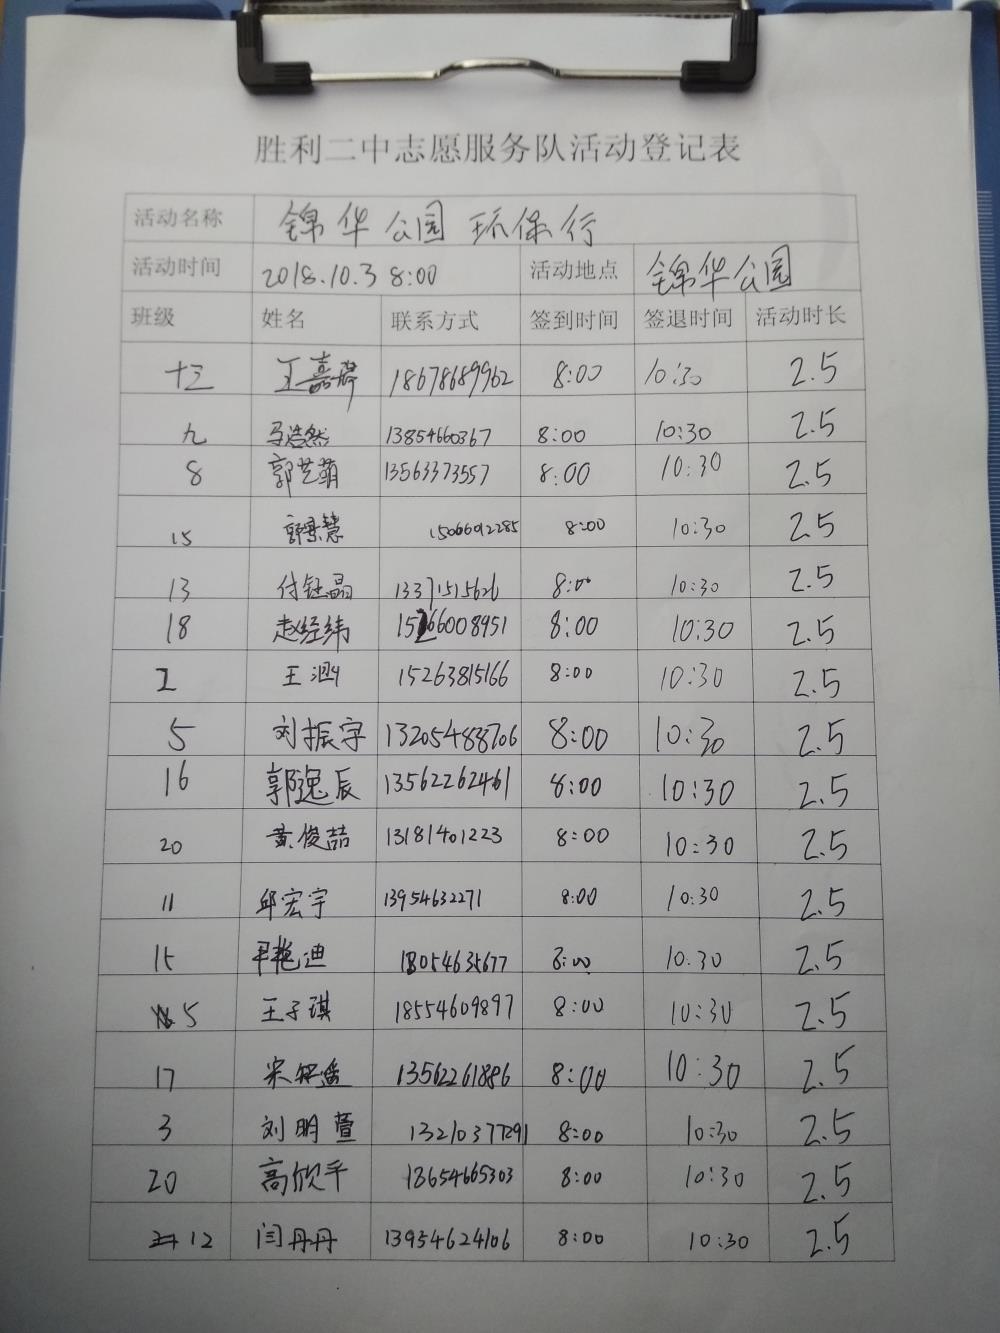 胜利二中志愿服务队活动登记表
活动名称 锦华公园 环保行
活动时间 2018.10.3 8:00 活动地点 锦华公园
班级 姓名 联系方式 签到时间 签退时间 活动时长
十三 王嘉 18678689962 8:00 10:30 2.5
九 马浩然 13854660367 8:00 10:30 2.5
8 郭艺萌 13563373557 8:00 10:30 2.5
15 慧 15066092285 8:00 10:30 2.5
13 付钰晶 13371515626 8:00 10:30 2.5
18 赵经纬 15266008951 8:00 10:30 2.5
王涵 15263815166 8:00 10:30 2.5
5 刘振宇 13205483706 8:00 10:30 2.5
16 郭逸辰 13562262461 8:00 10:30 2.5
20 黄俊喆 13181401223 8:00 10:30 2.5
11 邱宏宇 13954632271 8:00 10:30 2.5
15 尹艳迪 18054635677 8:00 10:30 2.5
5 王子琪 18554609897 8:00 10:30 2.5
17 宋 13562261886 8:00 10:30 2.5
3 刘明萱 13210377291 8:00 10:30 2.5
20 高欣平 18654665303 8:00 10:30 2.5
12 闫丹丹 13954624106 8:00 10:30 2.5